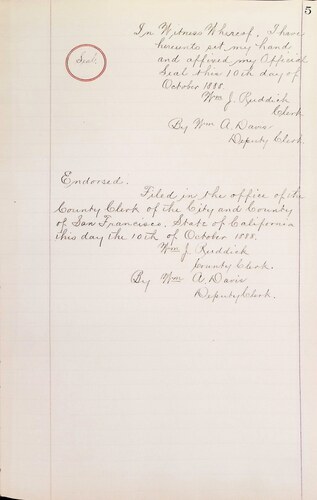 5
In Witness Whereof. I have
hereunto set my hand
and affixed my Official
Seal this 10th day of
October 1888.
Seal
Wm J. Ruddick
Clerk
By Wm A. Davis
Deputy Clerk.
Endorsed.
Filed in the office of the
County Clerk of the City and County
of San Francisco, State of California
this day the 10th of October 1888.
Wm J. Ruddick
County Clerk.
By Wm A. Davis
Deputy Clerk.